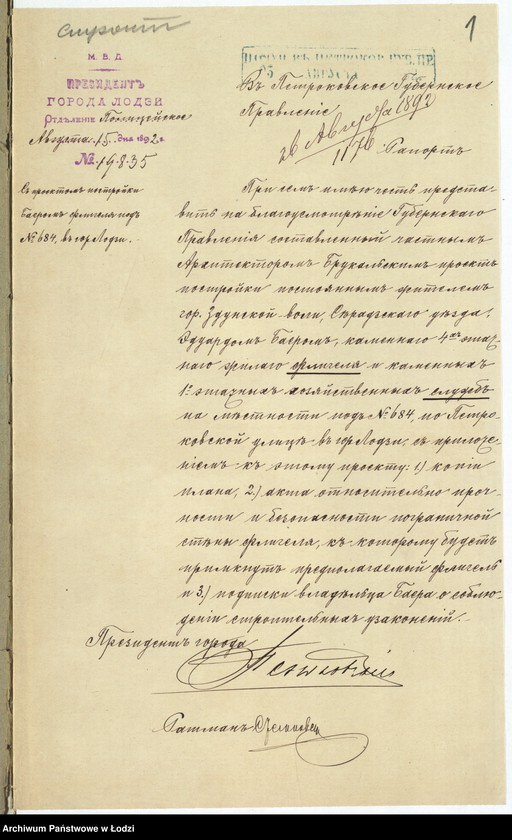 1
М. В. Д.
ПРЕЗИДЕНТЪ
ГОРОДА ЛОДЗИ
Отдѣленіе Полицейское
Августа 15 дня 1892 г.
№ 19835
Съ проектомъ постройки
Баеромъ флигеля подъ
№ 684, въ гор. Лодзи.
Въ Петроковское Губернское
Правленіе
Августа 1892
Рапортъ
При семъ имѣю честь предста-
вить на благоусмотрѣніе Губернскаго
Правленія составленный частнымъ
Архитекторомъ Брукальскимъ проектъ
постройки постояннымъ жителемъ
гор. Здунской-воли, Сѣрадзскаго уѣзда,
Эдуардомъ Баеромъ, каменнаго 4хъ этаж-
наго жилаго флигеля и каменныхъ
1о этажныхъ хозяйственныхъ службъ
на мѣстности подъ № 684, по Петро-
ковской улицѣ въ гор. Лодзи, съ приложе-
ніемъ къ этому проекту: 1.) копіи
плана, 2.) акта относительно проч-
ности и безопасности пограничной
стѣны флигеля, къ которому будетъ
примкнутъ предполагаемый флигель
и 3.) подписки владѣльца Баера о соблю-
деніи строительныхъ узаконеній.
Президентъ города
Ратманъ
Archiwum Państwowe w Łodzi